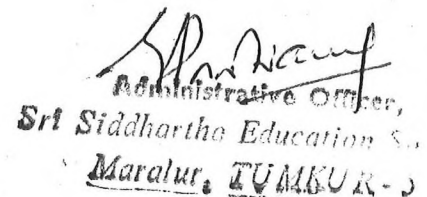 Administrative Officer,
Sri Siddhartha Education S.,
Maralur, TUMKUR-